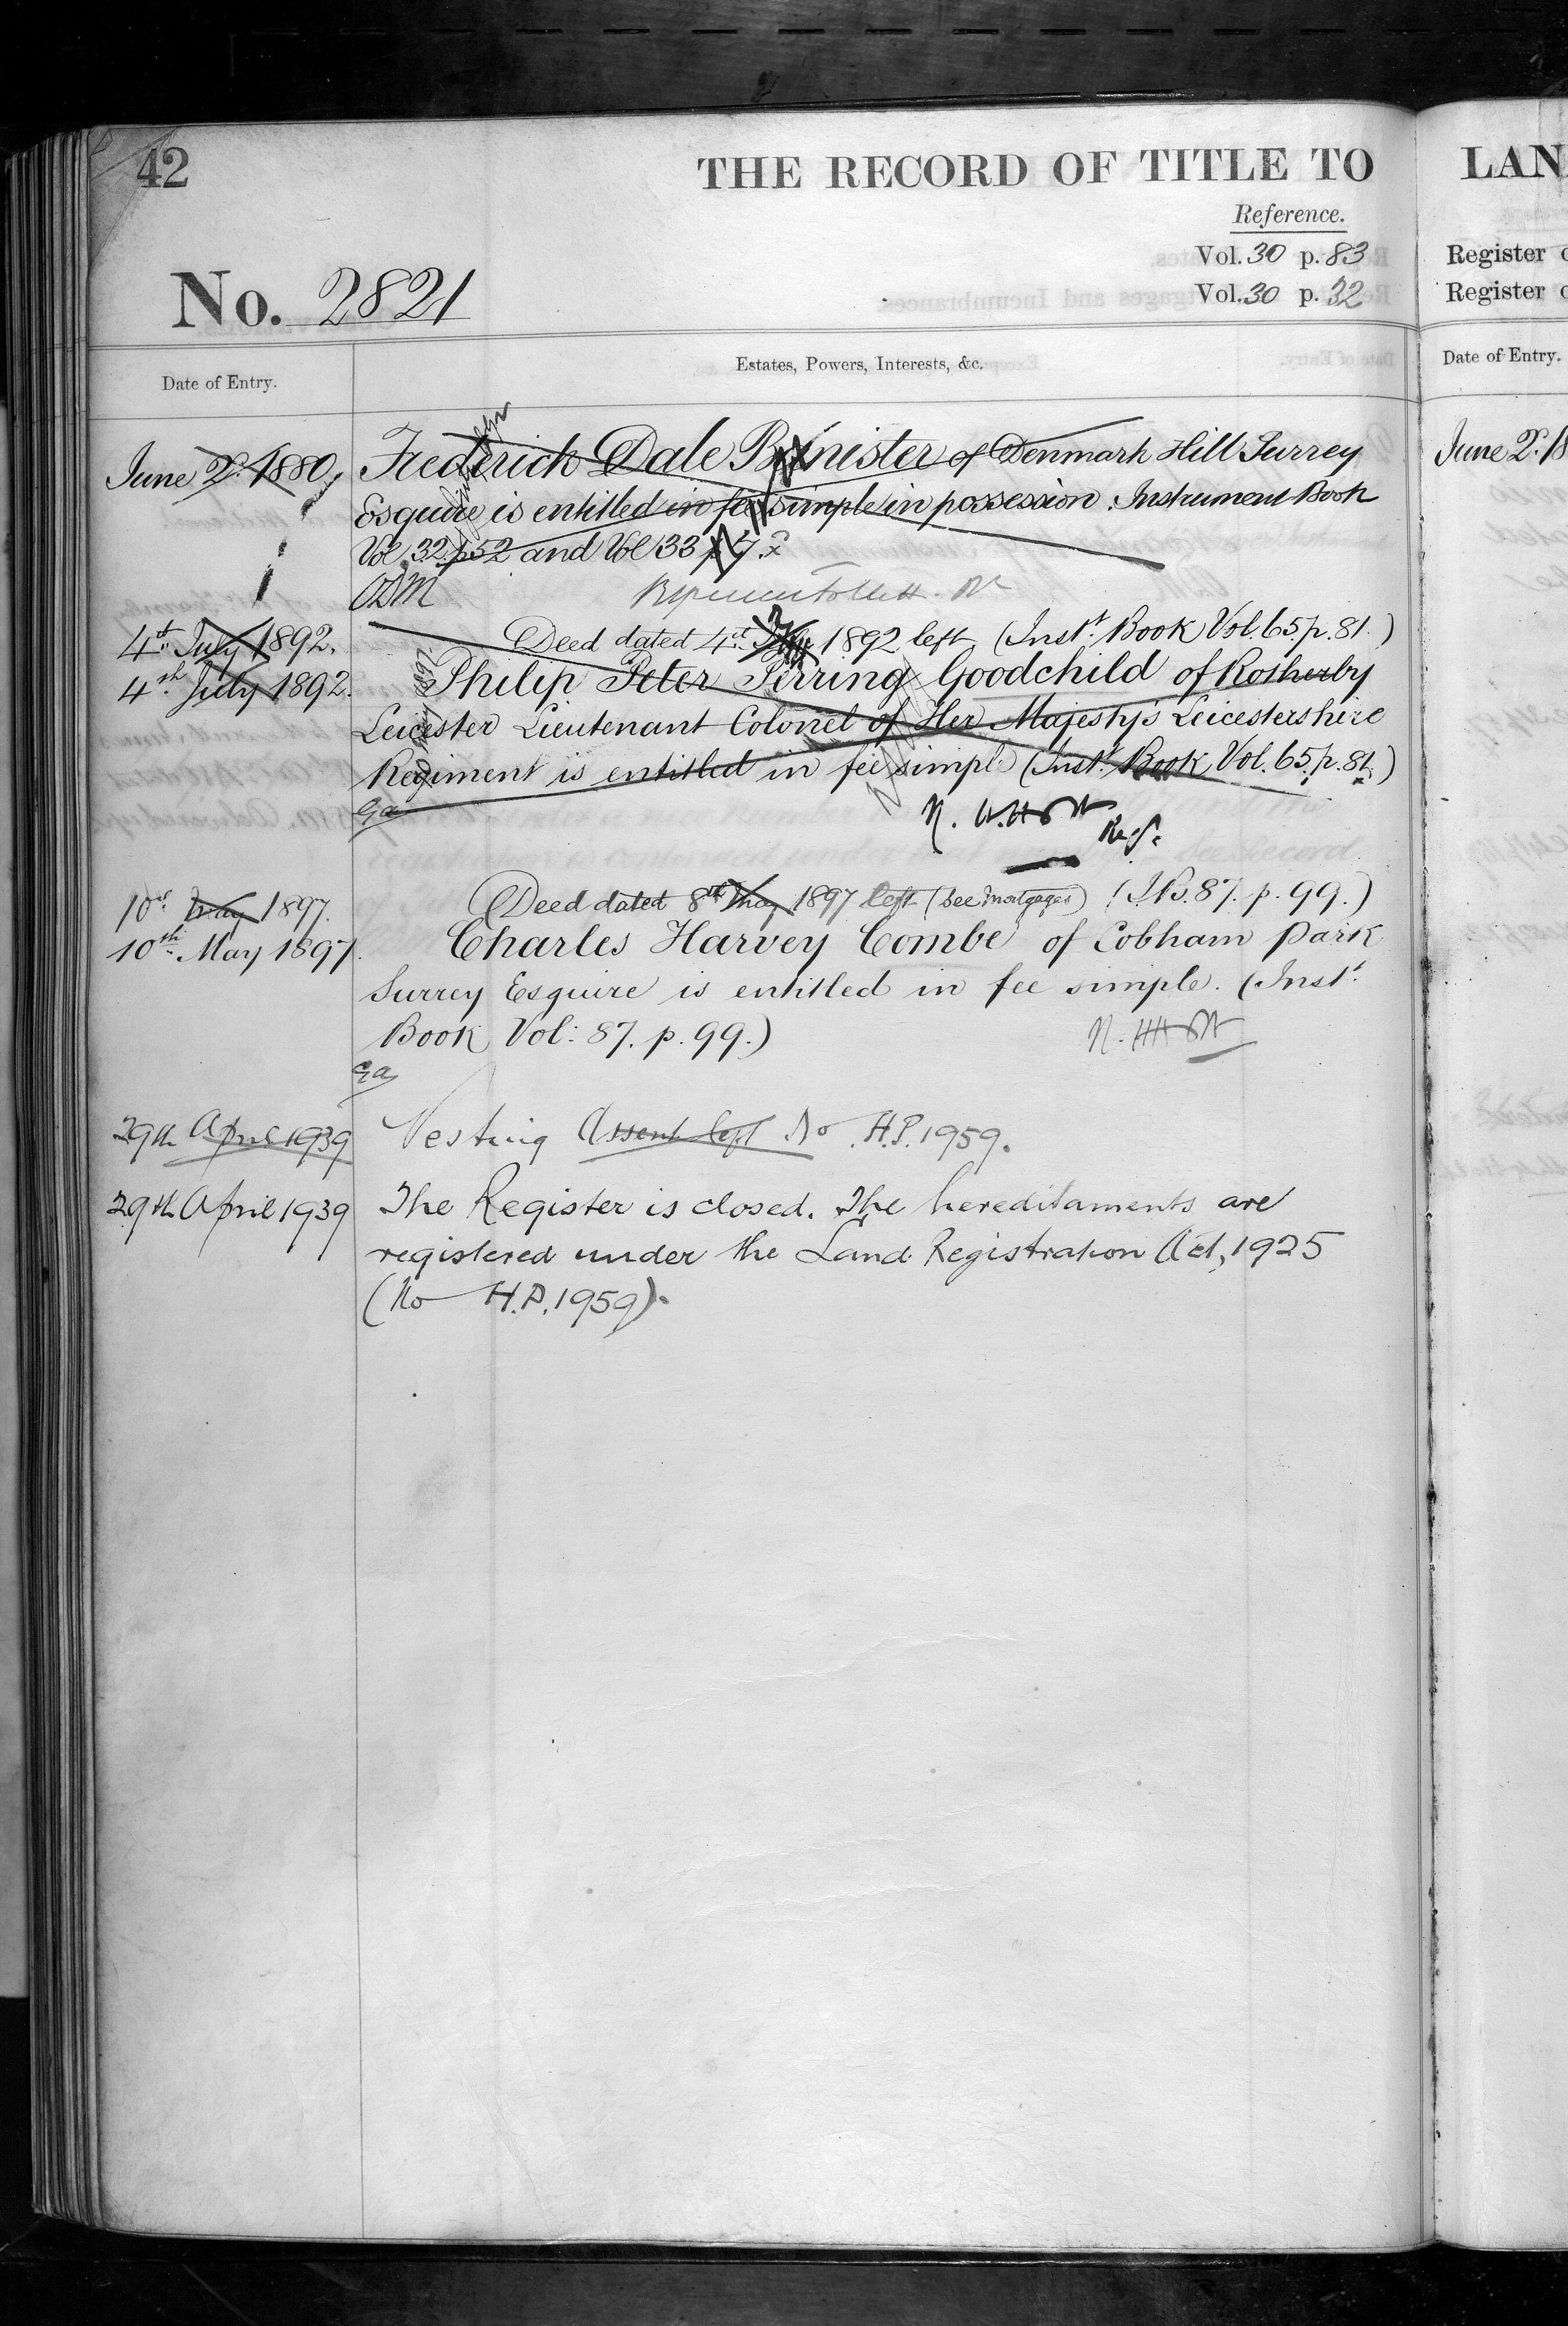 42
THE RECORD OF TITLE TO
Reference.
Vol. 30 p. 83
Vol. 30 p. 32
No. 2821
Date of Entry.
Estates, Powers, Interests, &c.
June 2d. 1880
Frederick Dale Banister of Denmark Hill Surrey
Esquire is entitled in fee simple in possession. Instrument Book
Vol 32 p52 and Vol 33 p 7.
ODM
4th July 1892.
Deed dated 4th July 1892 left (Inst. Book Vol. 65. p. 81.)
4th July 1892.
Philip Peter Perring Goodchild of Rotherby
Leicester Lieutenant Colonel of Her Majesty's Leicestershire
Regiment is entitled in fee simple (Inst. Book Vol. 65. p. 81.)
Ga
10th May 1897.
Deed dated 8th May 1897 left (see Mortgages) (I.B. 87. p. 99.)
10th May 1897.
Charles Harvey Combe of Cobham Park
Surrey Esquire is entitled in fee simple. (Inst.
Book Vol: 87. p. 99.)
Ga
29th April 1939
Vesting Assent left No H.P. 1959.
29th April 1939
The Register is closed. The hereditaments are
registered under the Land Registration Act, 1925
(No H.P. 1959).
LAN
Register
Register
Date of Entry.
June 2d. 18